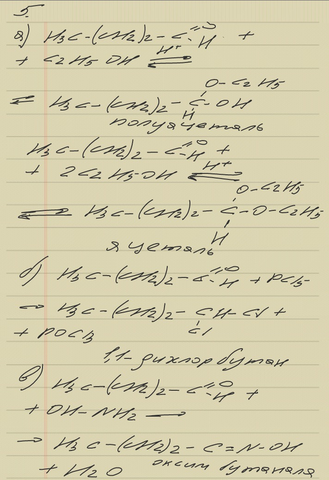 5.
а) H3C-(CH2)2-C=O H +
+ C2H5OH H+ ⇌
O-C2H5
⇌ H3C-(CH2)2-C-OH
H
полуацеталь
H3C-(CH2)2-C=O H +
+ 2C2H5-OH H+ ⇌
O-C2H5
⇌ H3C-(CH2)2-C-O-C2H5
H
ацеталь
б) H3C-(CH2)2-C=O H + PCl5
→ H3C-(CH2)2-CH-Cl +
Cl
+ POCl3
1,1-дихлорбутан
в) H3C-(CH2)2-C=O H +
+ OH-NH2 →
→ H3C-(CH2)2-C=N-OH
+ H2O оксим бутаналя